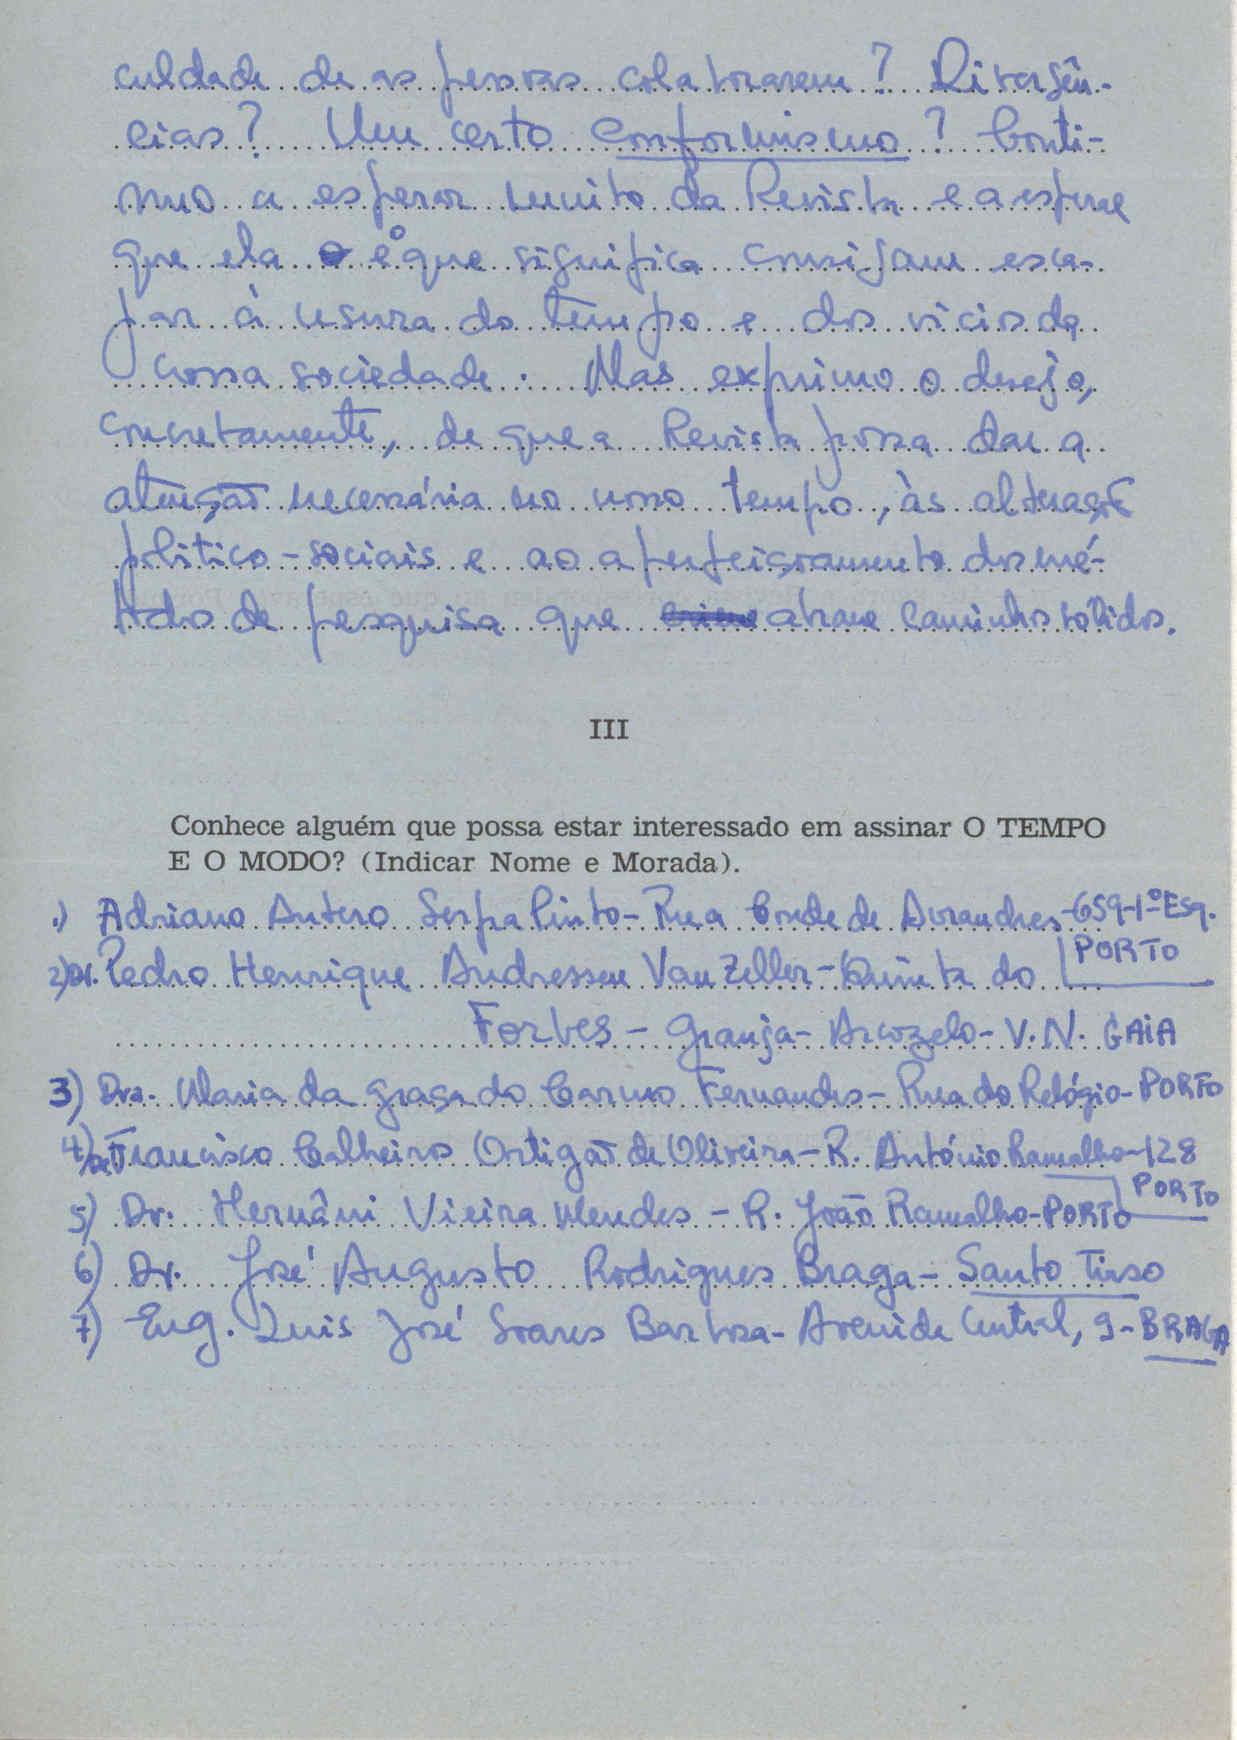 culdade de as pessoas colaborarem? Divergên-
cias? Um certo conformismo? Conti-
nuo a esperar muito da Revista e a esperar
que ela e o que significa consigam esca-
par à usura do tempo e dos vícios da
nossa sociedade. Mas exprimo o desejo,
concretamente, de que a Revista possa dar a
atenção necessária no nosso tempo, às alterações
político-sociais e ao aperfeiçoamento dos mé-
todos de pesquisa que abram caminhos sólidos.
III
Conhece alguém que possa estar interessado em assinar O TEMPO
E O MODO? (Indicar Nome e Morada).
1) Adriano Antero Serpa Pinto - Rua Conde de Avranches - 659-1º Esq.
PORTO
2) Dr. Pedro Henrique Andressen Van Zeller - Quinta do
Forbes - Granja - Arcozelo - V. N. GAIA
3) Dra. Maria da Graça do Carmo Fernandes - Rua do Relógio - PORTO
4) Francisco Calheiros Ortigão de Oliveira - R. António Ramalho - 128
PORTO
5) Dr. Hernâni Vieira Mendes - R. João Ramalho - PORTO
6) Dr. José Augusto Rodrigues Braga - Santo Tirso
7) Eng. Luis José Soares Barbosa - Avenida Central, 9 - BRAGA